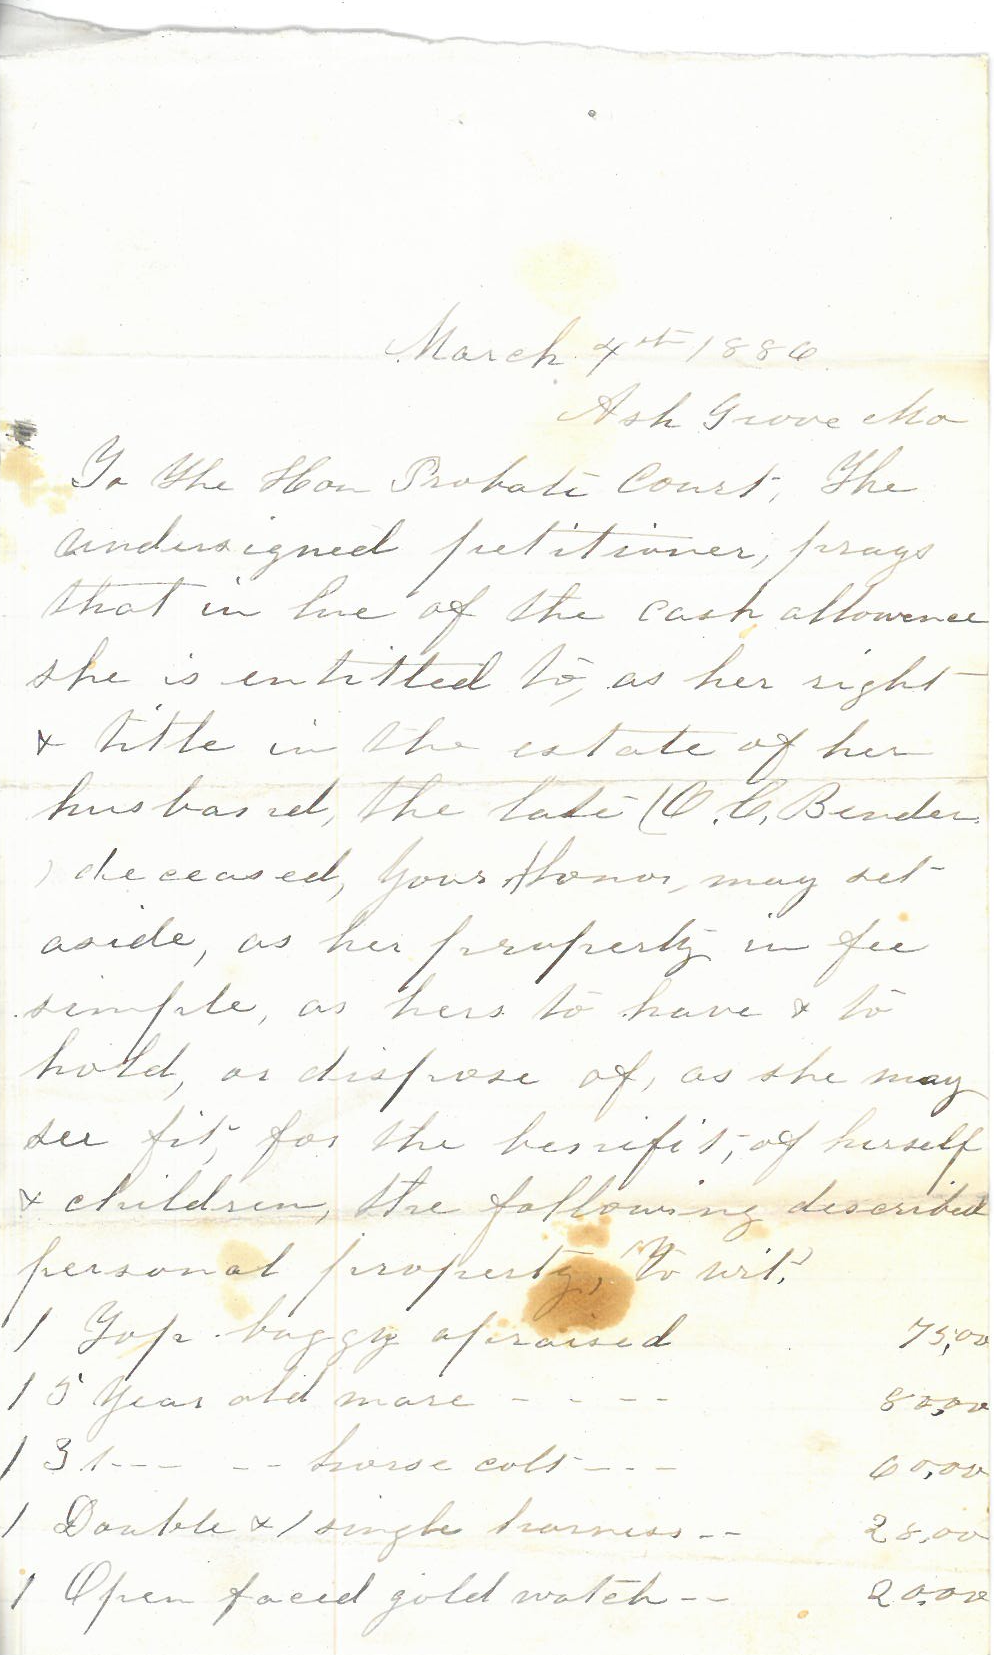 March 4th 1886
Ash Grove Mo
To The Hon Probate Court, The
undersigned petitioner, prays
that in lue of the cash allowence
she is entitled to, as her right
& title in the estate of her
husband, the late (O. C. Bender
) deceased, Your Honor, may set
aside, as her property in fee
simple, as hers to have & to
hold, or dispose of, as she may
see fit, for the benifit, of herself
& children, the following described
personal property, "To wit."
1 Top buggy apraised 75,00
1 5 Year old mare - - - - 80,00
1 3 --- -- horse colt --- 60,00
1 Double & 1 single harness -- 28,00
1 Open faced gold watch -- 20.00